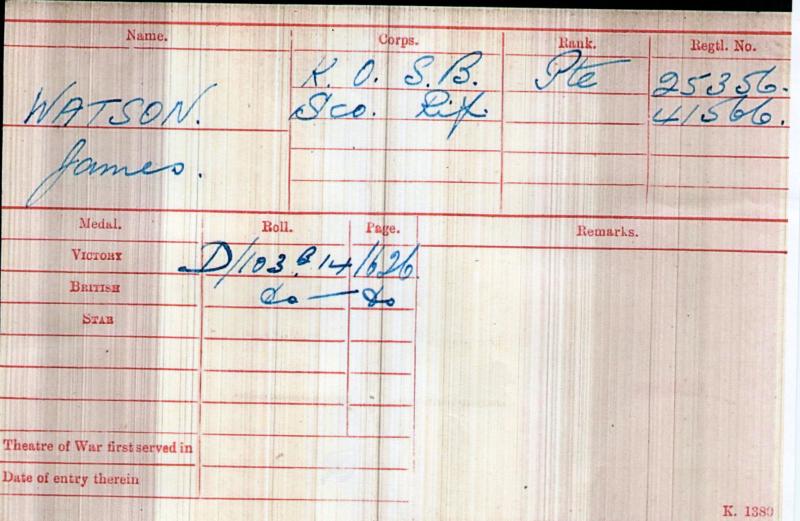 Name. Corps. Rank. Regtl. No.
K. O. S. B. Pte 25356.
WATSON. Sco. Rif. 41566.
James.
Medal. Roll. Page. Remarks.
VICTORY D/103 B 14 1626
BRITISH do — do
STAR
Theatre of War first served in
Date of entry therein
K. 1380